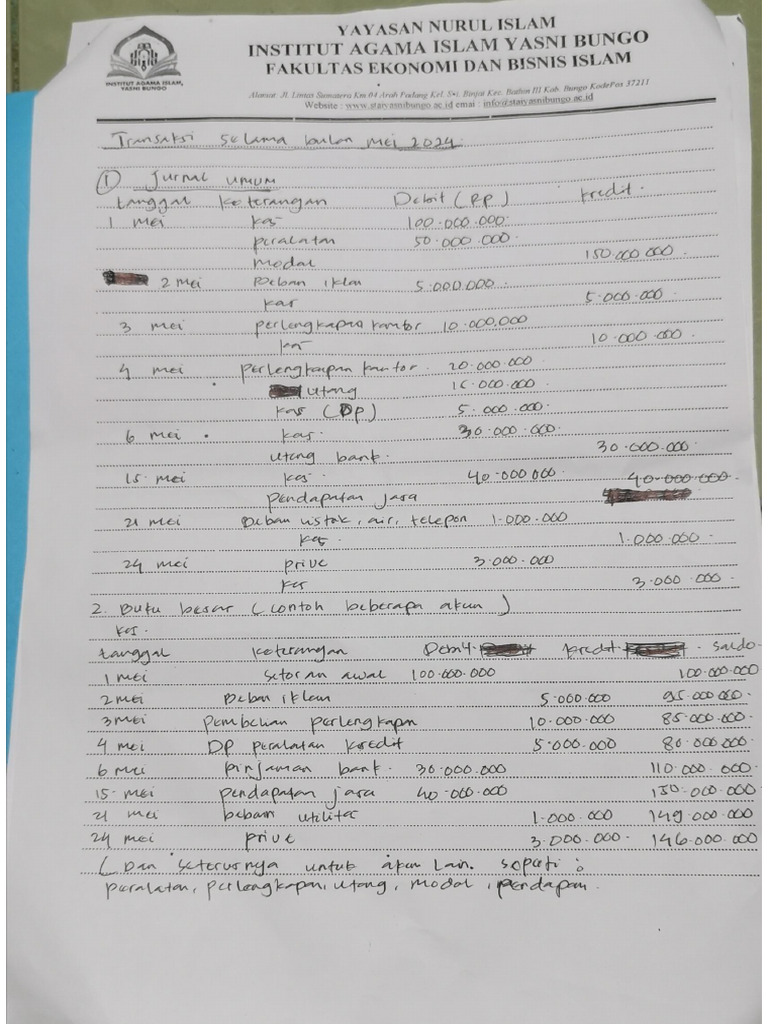 YAYASAN NURUL ISLAM
INSTITUT AGAMA ISLAM YASNI BUNGO
FAKULTAS EKONOMI DAN BISNIS ISLAM
INSTITUT AGAMA ISLAM,
YASNI BUNGO
Alamat: Jl. Lintas Sumatera Km 04 Arah Padang Kel. Sei. Binjai Kec. Bathin III Kab. Bungo KodePos 37211
Website : www.staiyasnibungo.ac.id emai : info@staiyasnibungo.ac.id
Transaksi selama bulan mei 2024
1 Jurnal umum
tanggal keterangan Debit (RP) kredit
1 mei kas 100.000.000
peralatan 50.000.000
modal 150.000.000
2 mei Beban iklan 5.000.000
kas 5.000.000
3 mei perlengkapan kantor 10.000.000
kas 10.000.000
4 mei perlengkapan kantor 20.000.000
utang 15.000.000
kas (DP) 5.000.000
6 mei kas 30.000.000
utang bank 30.000.000
15 mei kas 40.000.000 40.000.000
pendapatan jasa
21 mei Beban listrik, air, telepon 1.000.000
kas 1.000.000
24 mei prive 3.000.000
kas 3.000.000
2. Buku besar (contoh beberapa akun)
kas.
tanggal keterangan Debit kredit saldo
1 mei setoran awal 100.000.000 100.000.000
2 mei Beban iklan 5.000.000 95.000.000
3 mei pembelian perlengkapan 10.000.000 85.000.000
4 mei DP peralatan kredit 5.000.000 80.000.000
6 mei pinjaman bank 30.000.000 110.000.000
15 mei pendapatan jasa 40.000.000 150.000.000
21 mei beban utilitas 1.000.000 149.000.000
24 mei prive 3.000.000 146.000.000
(Dan seterusnya untuk akun lain. seperti :
peralatan, perlengkapan, utang, modal, pendapan.